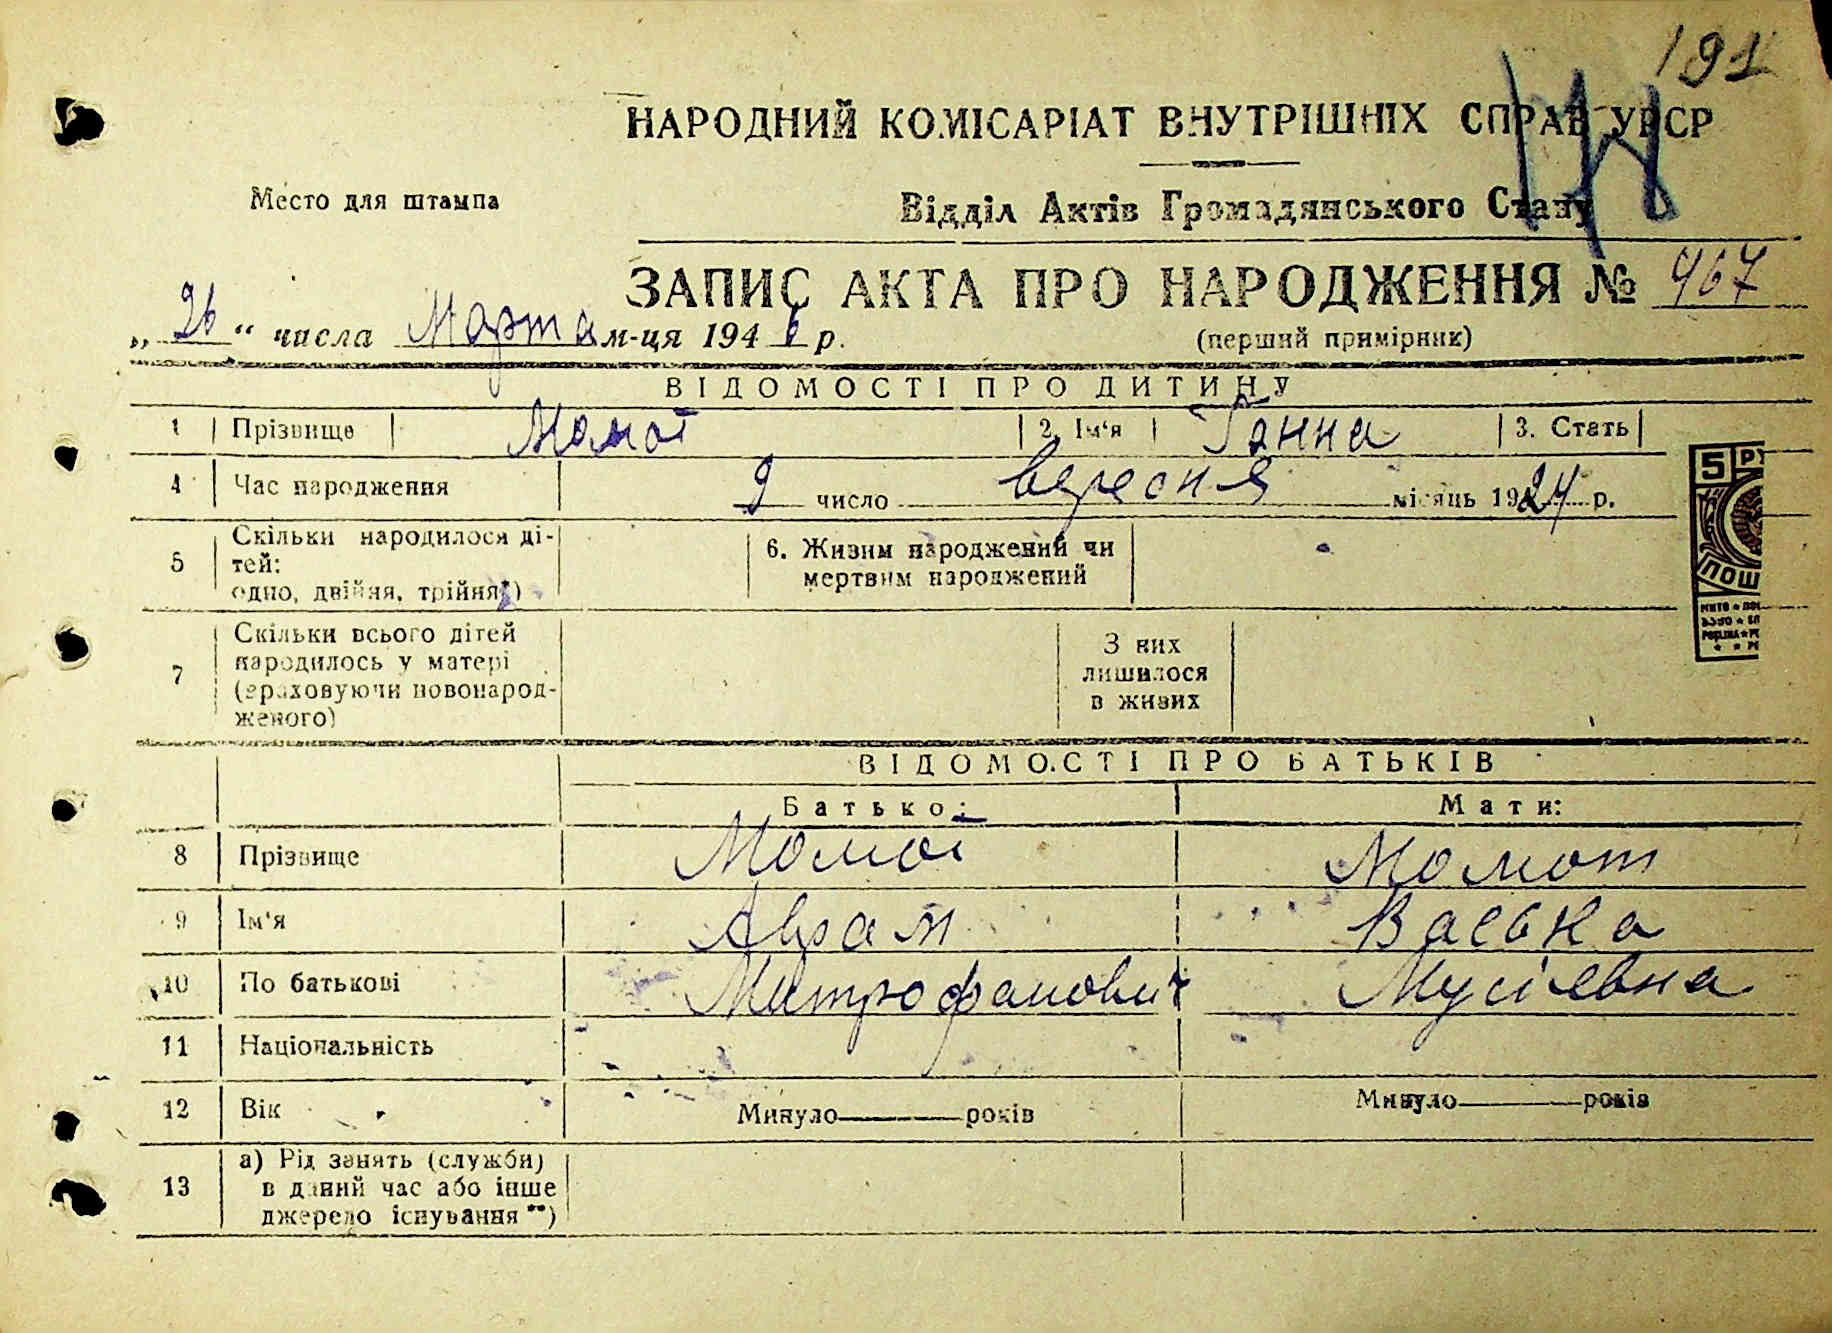 191
НАРОДНИЙ КОМІСАРІАТ ВНУТРІШНІХ СПРАВ УРСР
Место для штампа
Відділ Актів Громадянського Стану
ЗАПИС АКТА ПРО НАРОДЖЕННЯ № 467
„ 26 “ числа Марта м-ця 1946 р.
(перший примірник)
ВІДОМОСТІ ПРО ДИТИНУ
1 Прізвище Момот 2. Ім'я Ганна 3. Стать
4 Час народження 9 число вересня місяць 1924 р.
5 Скільки народилося ді-
тей:
одно, двійня, трійня*)
6. Живим народжений чи
мертвим народжений
7 Скільки всього дітей
народилось у матері
(враховуючи новонарод-
женого)
З них
лишилося
в живих
5 РУ
ПОШ
ВІДОМОСТІ ПРО БАТЬКІВ
Батько: Мати:
8 Прізвище Момот Момот
9 Ім'я Аврам Васька
10 По батькові Митрофанович Мусієвна
11 Національність
12 Вік Минуло — років Минуло — років
13 а) Рід занять (служби)
в даний час або інше
джерело існування **)